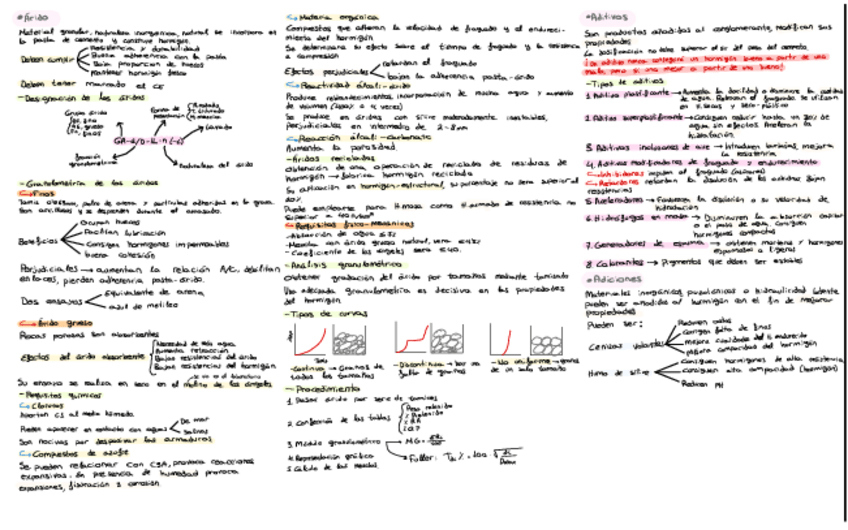 *Árido
Material granular, naturaleza inorgánica, natural se incorpora en
la pasta de cemento y construye hormigón.
Resistencia y durabilidad
Buena adherencia con la pasta
Deben cumplir
Baja proporción de huecos
Mantener hormigón fresco
Deben tener marcado el CE
-Designación de los áridos
GA-d/D-IL-n (-L)
Lavado
Naturaleza del árido
-Granulometría de los áridos
Finos
Son arcillosos y se desprenden durante el amasado.
Ocupan huecos
Facilitan lubricación
Beneficios
Consiguen hormigones impermeables
buena cohesión
Perjudiciales → aumentan la relación A/C, debilitan
enlaces, pierden adherencia pasta-árido.
Dos ensayos
Equivalente de arena
azul de metileno
Árido grueso
Rocas porosas son absorbentes
Efectos del árido absorbente
Necesidad de más agua
Aumenta retracción
Bajas resistencias del árido
Bajas resistencias del hormigón
-Requisitos químicos
Cloruros
Pueden aparecer en contacto con aguas
De mar
Salinas
Son nocivos por despasivar las armaduras
Compuestos de azufre
Se pueden reaccionar con C3A, provoca reacciones
expansivas. En presencia de humedad provoca
expansiones, fisuración y corrosión.
Materia orgánica
Compuestos que alteran la velocidad de fraguado y el endureci-
miento del hormigón
Se determinará su efecto sobre el tiempo de fraguado y la resistencia
a compresión
Efectos perjudiciales
retardan el fraguado
bajan la adherencia pasta-árido
Reactividad álcali-árido
Produce reblandecimientos, incorporación de mucha agua y aumento
de volumen
Se produce en áridos con sílice metaestable inestables,
perjudiciales en intermedio de 2-8mm
Reacción álcali-carbonato
Aumenta la porosidad.
-Áridos reciclados
obtención de una operación de reciclado de residuos de
hormigón → fabricar hormigón reciclado
Su aplicación en hormigón estructural, su porcentaje no será superior al
20%.
Puede emplearse para H.masa como H.armado de resistencia no
superior a
Requisitos físico-mecánicos
-Absorción de agua
-Mezcla con árido grueso natural,
-Coeficiente de los ángeles será ≤40.
-Análisis granulométrico
Obtener gradación del árido por tamaños mediante tamizado
Una adecuada granulometría es decisiva en las propiedades
del hormigón
-Tipos de curvas
-Continua → Granos de
todos los tamaños
-Discontinua →
salto de granos
-No uniforme → granos
de un solo tamaño
-Procedimiento
1. Pasar árido por serie de tamices
2. Confección de las tablas
Peso retenido
% Retenido
3. Módulo granulométrico → MG=
4. Representación gráfica
Fuller:
5. Cálculo de las mezclas
*Aditivos
Son productos añadidos al conglomerante, modifican sus
propiedades
La dosificación no debe superar el 5% del peso del cemento.
¡Los aditivos nunca conseguirán un hormigón bueno a partir de uno
malo pero sí uno mejor a partir de uno bueno!
-Tipos de aditivos
1. Aditivo plastificante → Aumenta la docilidad o disminuye la cantidad
de agua. Retrasan el fraguado. Se utilizan
2. Aditivo superplastificante → Consiguen reducir hasta un 30% de
agua sin efectos. Aceleran la
hidratación.
3. Aditivos inclusores de aire → Introducen burbujas, mejora
la resistencia
4. Aditivos modificadores de fraguado y endurecimiento
Inhibidores: impiden el fraguado
Retardadores: retardan la disolución de los
resistencias
5. Aceleradores → Favorecen la disolución o su velocidad de
hidratación
6. Hidrófugos en masa → Disminuyen la absorción capilar
o el paso de agua, consiguen
hormigones compactos
7. Generadores de espuma → obtienen morteros y hormigones
espumados o ligeros
8. Colorantes → Pigmentos que deben ser estables
*Adiciones
Materiales inorgánicos, puzolánicos o hidraulicidad latente
pueden ser añadidos al hormigón con el fin de mejorar
propiedades
Pueden ser:
Cenizas volantes
Reducen calor
Corrigen falta de finos
mejora cualidades del endurecido
mejora compacidad del hormigón
Humo de sílice
Consiguen hormigones de alta resistencia
Consiguen alta compacidad (hormigón)
Reducen PH